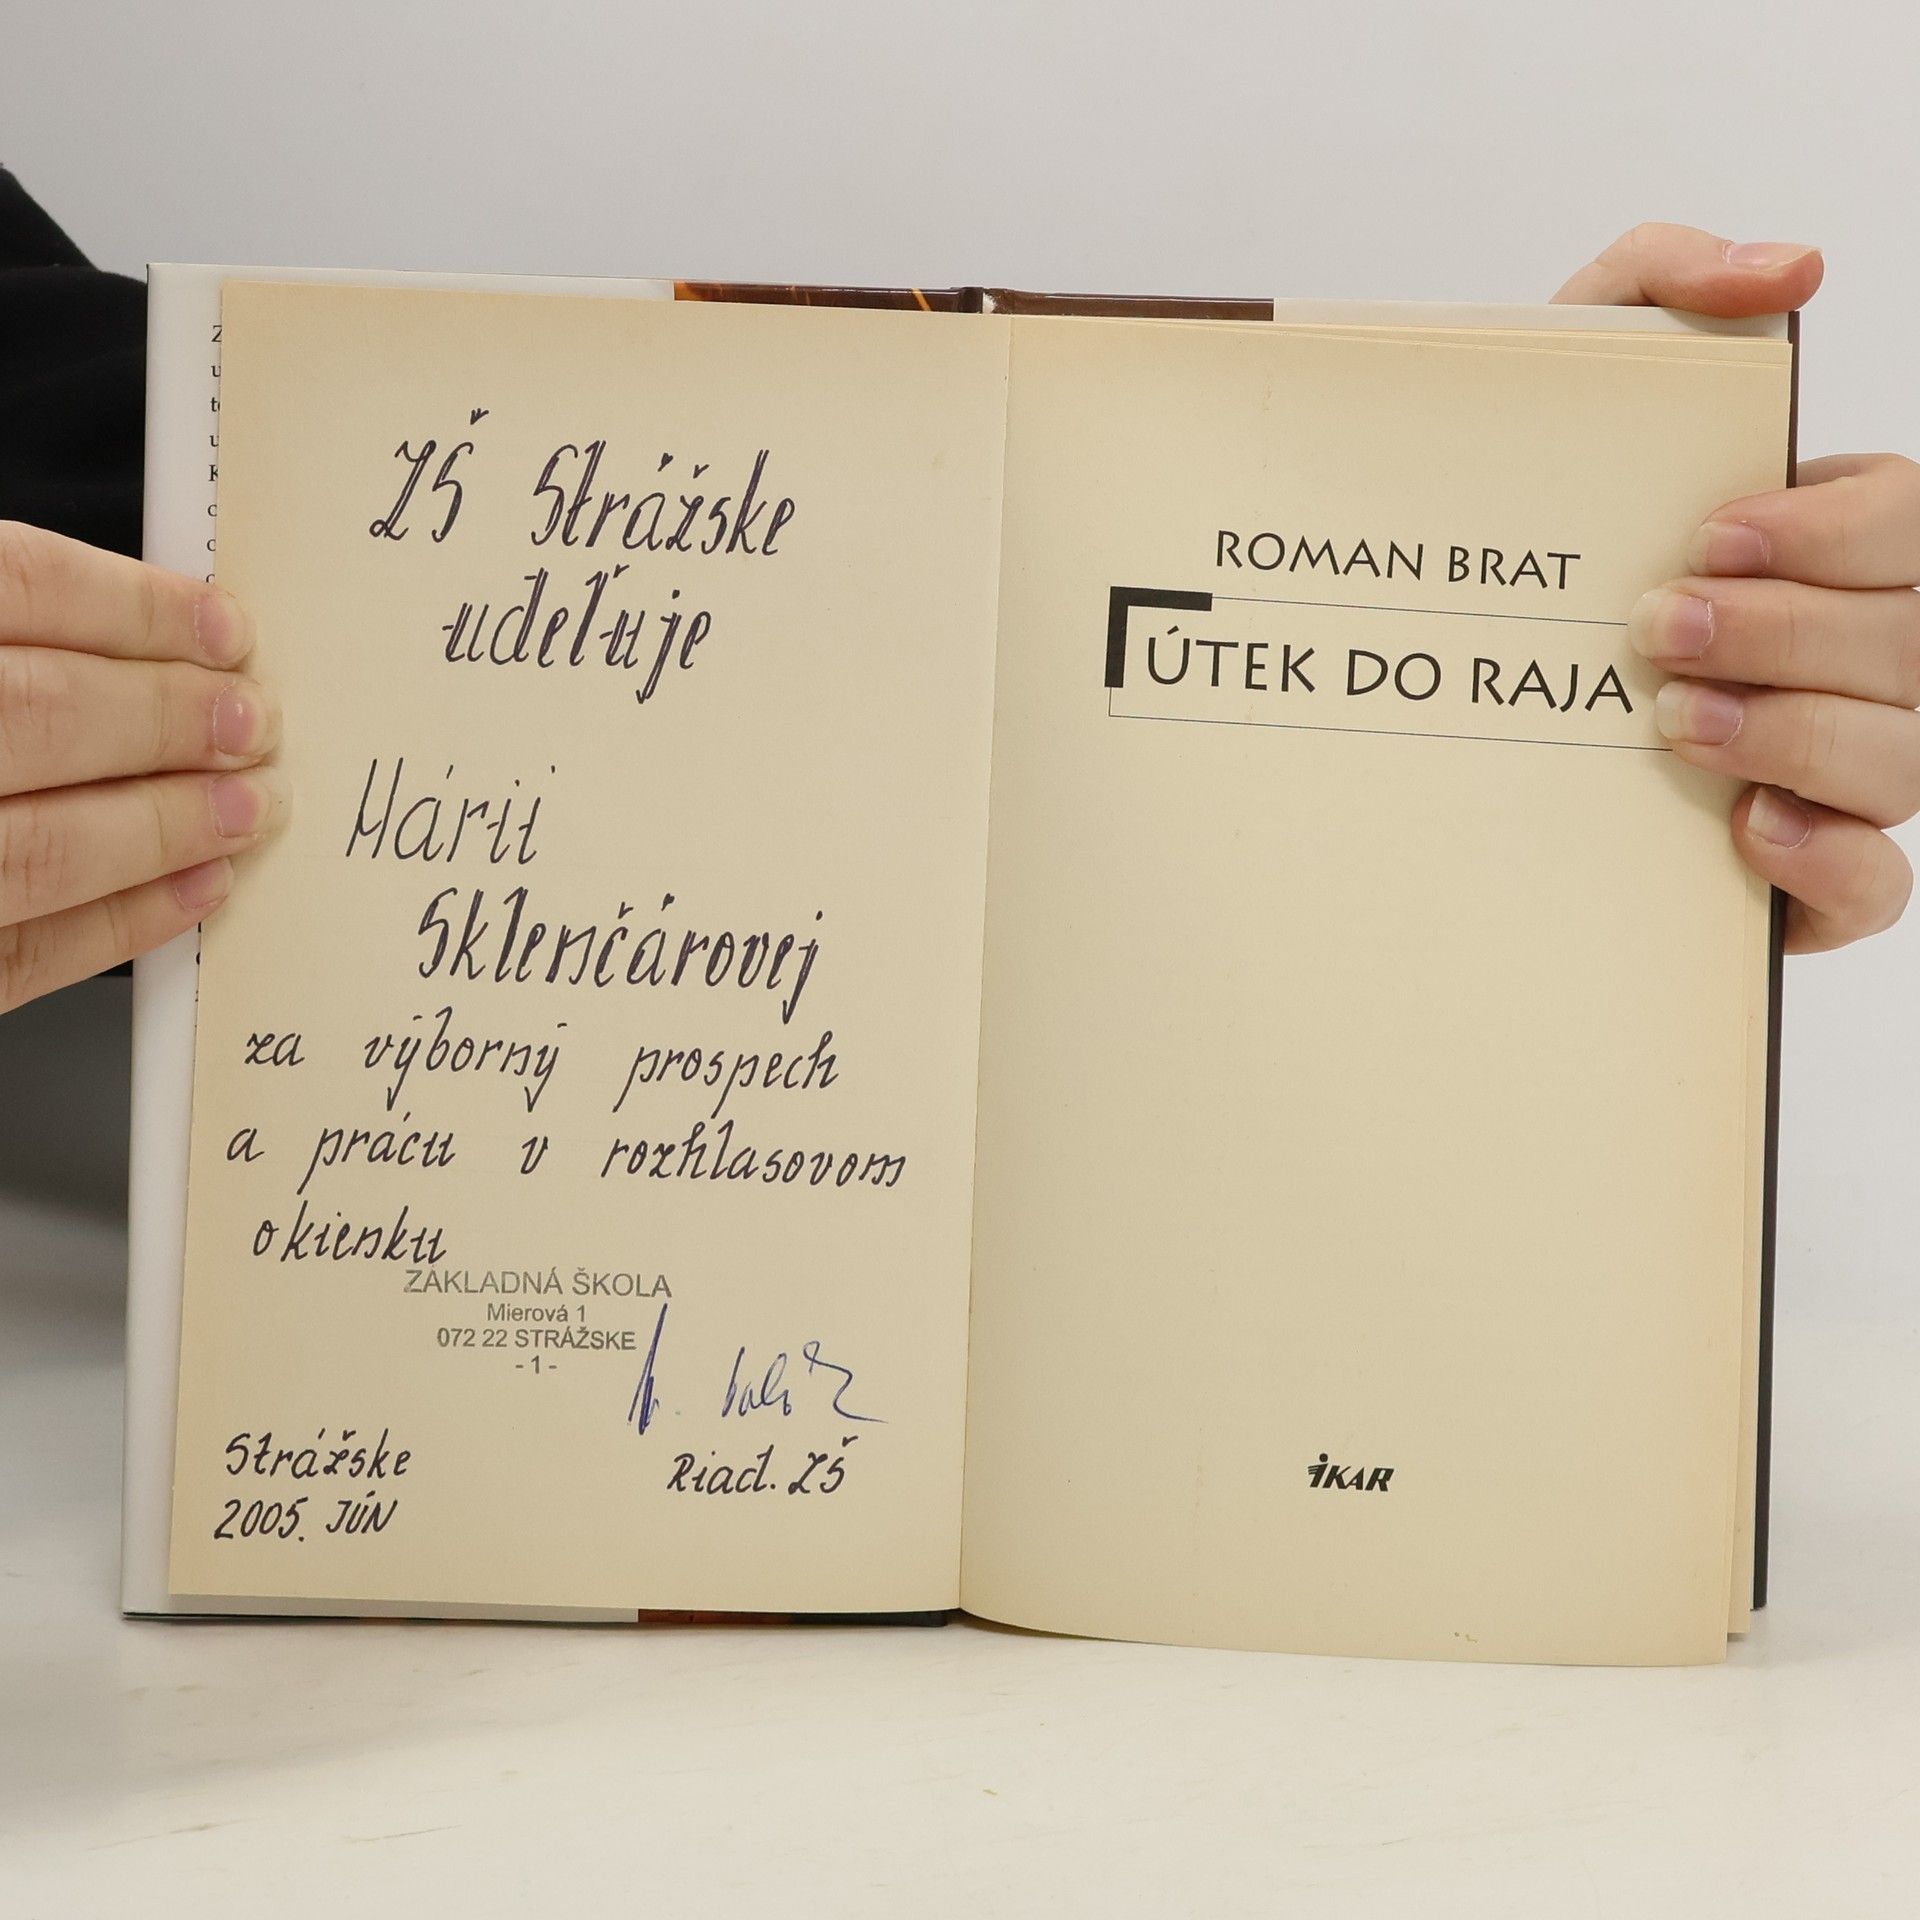 ZŠ Strážske
udeľuje
Márii
Sklenčárovej
za výborný prospech
a prácu v rozhlasovom
okienku
ZÁKLADNÁ ŠKOLA
Mierová 1
072 22 STRÁŽSKE
- 1 -
Riad. ZŠ
Strážske
2005. JÚN
ROMAN BRAT
ÚTEK DO RAJA
IKAR